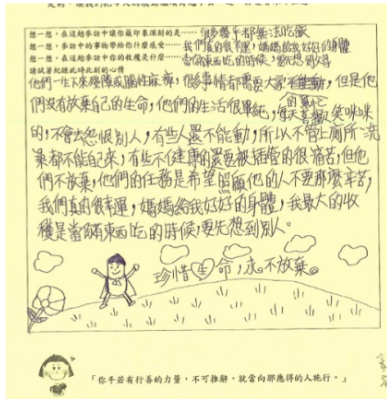 想一想，在這趟參訪中讓你最印象深刻的是……很多孩子都無法吃飯
想一想，參訪中的事物帶給你什麼感受……我們真的很幸運，媽媽給我好好的身體
想一想，在這趟參訪中你的收穫是什麼……當你有東西吃的時候，要先想到別人
請試著紀錄此時此刻的心情
他們一生下來殘障或腦性麻痺，很多事情都需要大家，但是他
們沒有放棄自己的生命，他們的生活很單純，每天笑咪咪
的，不會去怨恨別人，有些人還不能動，所以不管上廁所、洗
澡都不能自來，有些不健康的寶寶被插管的很痛苦，但他
們不放棄，他們的任務是希望照顧他的人不要那麼辛苦，
我們真的很幸運，媽媽給我好好的身體，我最大的收
穫是當你有東西吃的時候，要先想到別人。
珍惜生命，永不放棄。
「你手若有行善的力量，不可推辭，就當向那應得的人施行。」